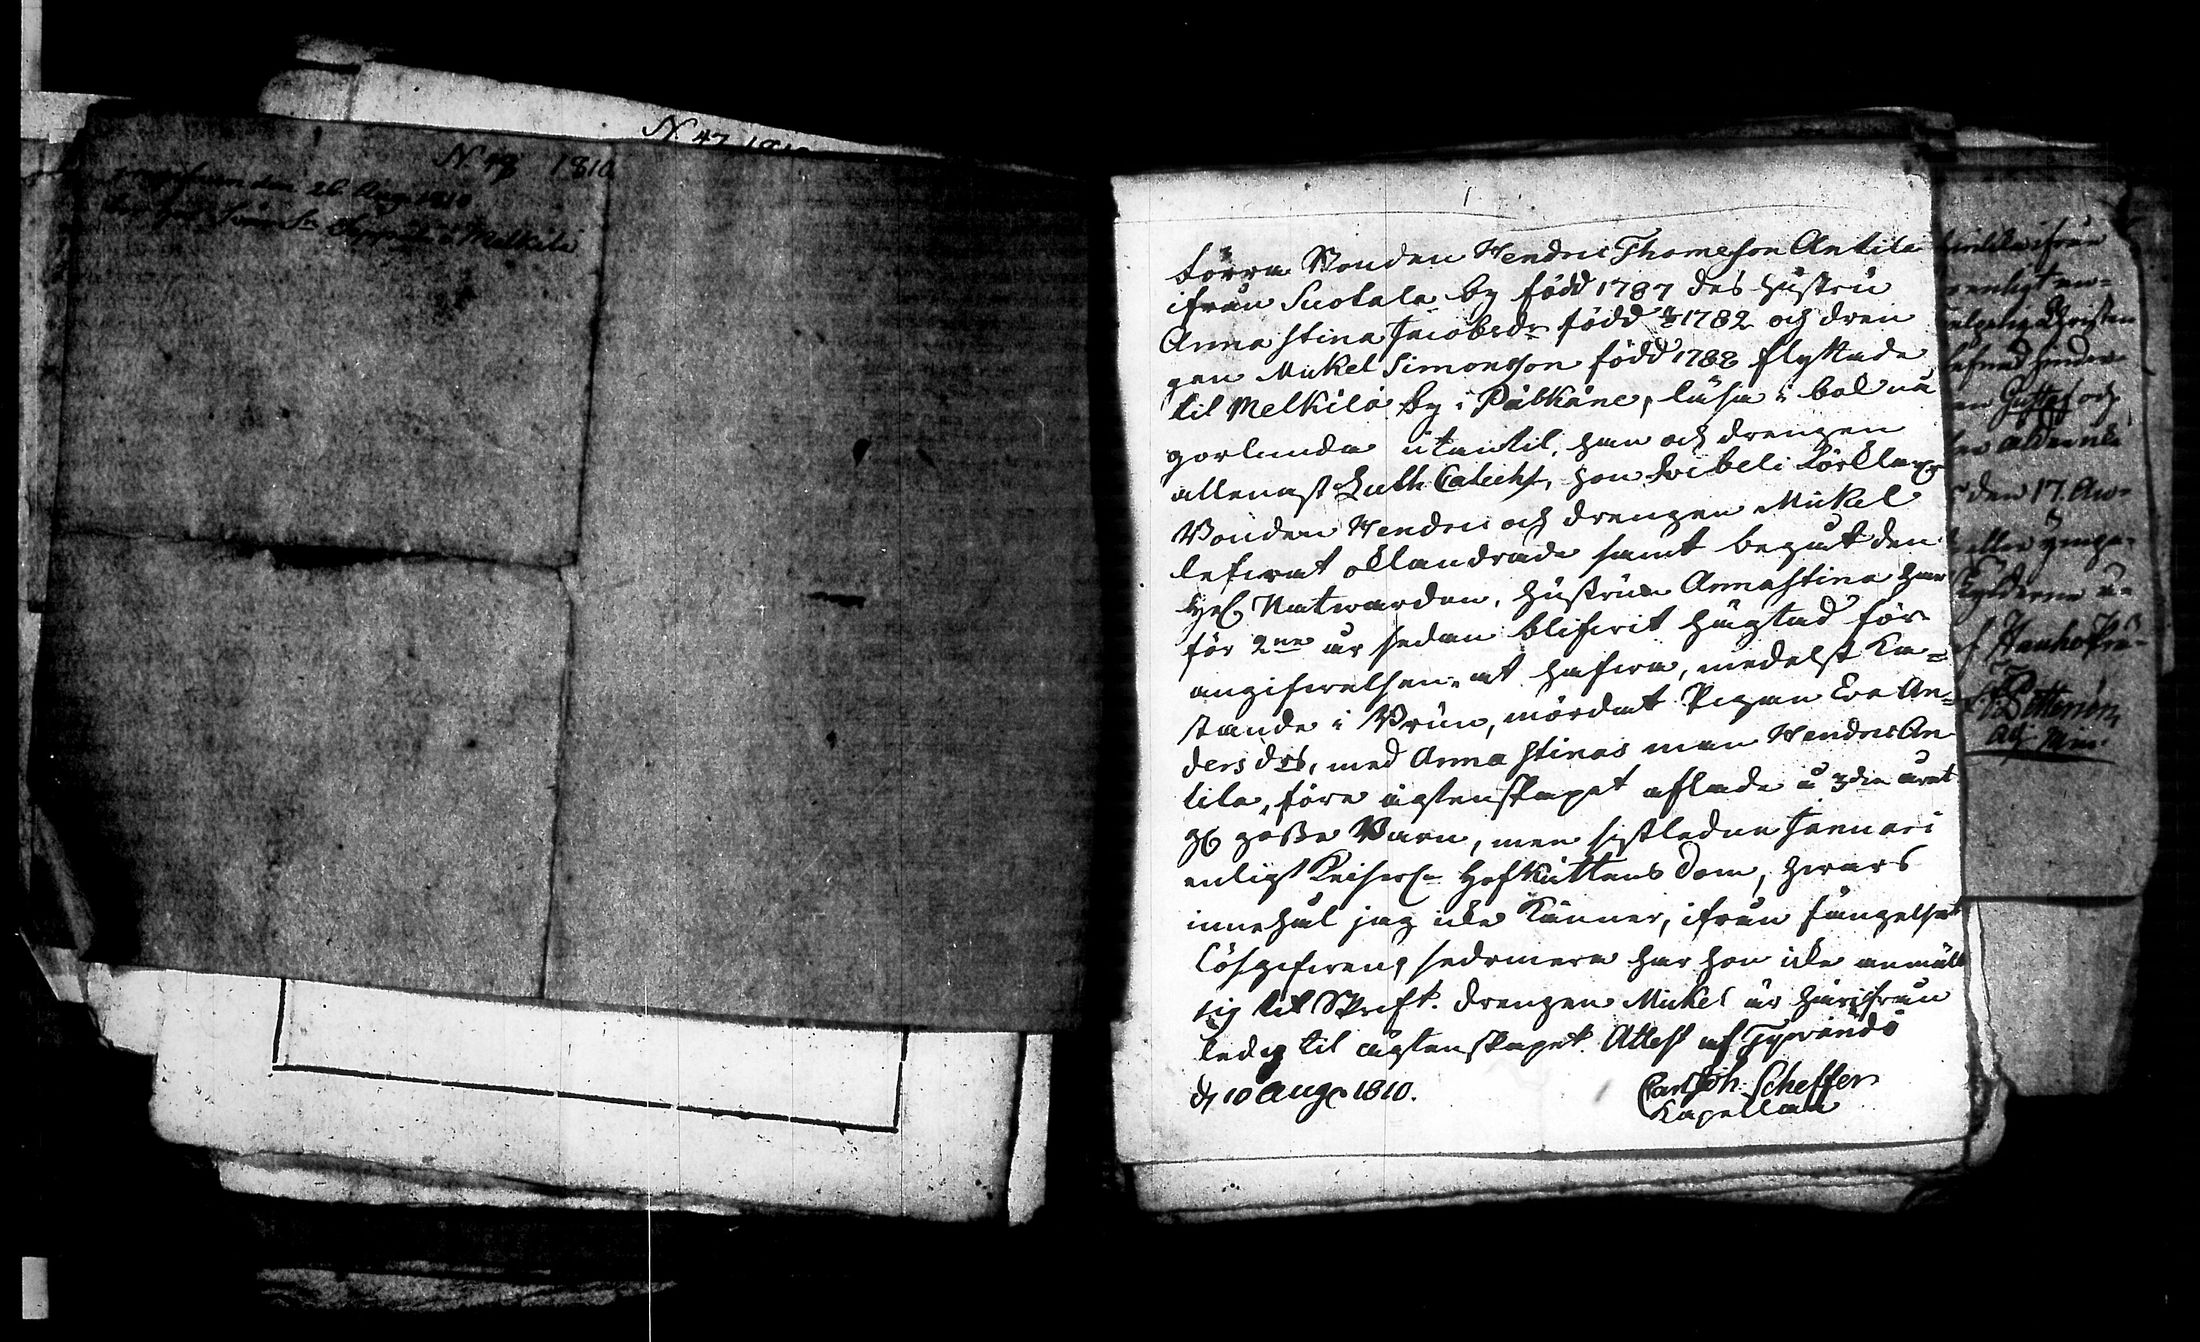 N. 47 1810
N. 48 1810
den 26 Aug 1810
Melkilä
Förra Bonden Hendric Thomesson Antila
ifrån Suotala by född 1787 dess hustru
Anna Stina Jacobsdr född 1782 och dren
gen Mickel Simonsson född 1788 flyttade
til Melkilä by i Pälkäne, läsa i bok nå
gorlunda utantil, han och drengen
allenast Luth Catichs, hon Svebeli förklar
Bonden Hendric och drengen Mickel
lefwat oklandrade samt begått den
Hel Natwarden, hustrun Anna Stina har
för 2ne år sedan blifwit hägtad för
angifwelsen at hafwa, medelst Ka=
stande i Brun, mördat Pigan Eva An=
ders drs, med Anna Stinas man Hendric An
tila, före ägtenskapet aflade å 3die året
gl gosse Barn, men sistledne Januari
enligt Keiserl Hofrättens Dom, hwars
innehål jag icke känner, ifrån fängelset
lösgifwen, sedermera har hon icke anmält
sig til Skrift. Drengen Mickel är härifrån
ledig til ägtenskapet. Attest af Tyrvändö
d. 10 Aug. 1810.
Carl Joh. Scheffer
Kapellan
enligt en=
Christen
Gustaf och
den 17. Au=
eller